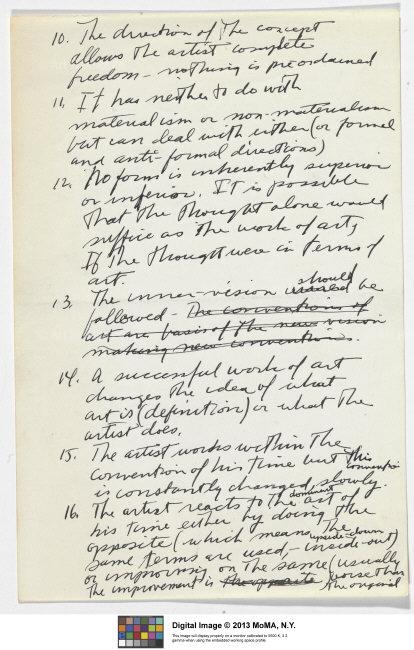 10. The direction of the concept
allows the artist complete
freedom - nothing is preordained
11. It has neither to do with
materialism or non-materialism
but can deal with either (or formal
and anti-formal directions)
12. No form is inherently superior
or inferior. It is possible
that the thought alone would
suffice as the work of art,
If the thought were in terms of
art.
13. The inner-vision should be
followed - The conventions of
art are basis of the new vision
making new conventions.
14. A successful work of art
changes the idea of what
art is (definition) or what the
artist does.
15. The artist works within the
convention of his time but this
convention
is constantly changed, slowly.
16. The artist reacts to the dominant art of
his time either by doing the
opposite (which means the
same terms are used, - upside-down inside-out)
or improving on the same (usually
the improvement is the opposite worse than
the original
Digital Image © 2013 MoMA, N.Y.
This image will display properly on a monitor calibrated to 6500 K, 2.2
gamma when using the embedded working space profile.